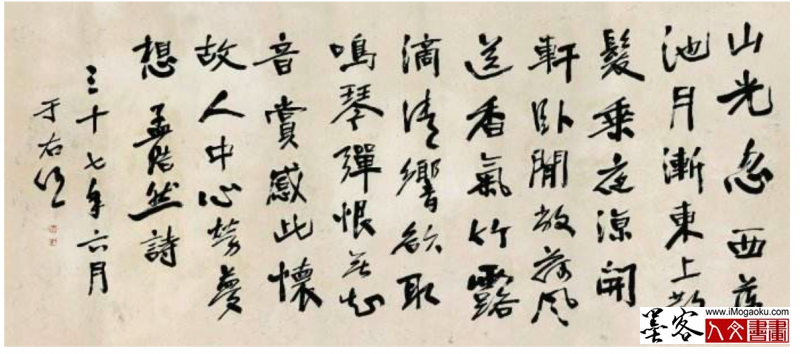 山光忽西落
池月漸東上散
髮乘夜涼開
軒臥閒敞荷風
送香氣竹露
滴清響欲取
鳴琴彈恨無知
音賞感此懷
故人中心勞夢
想 孟浩然詩
三十七年六月
于右任
墨客
www.iMogaoku.com
人文書畫